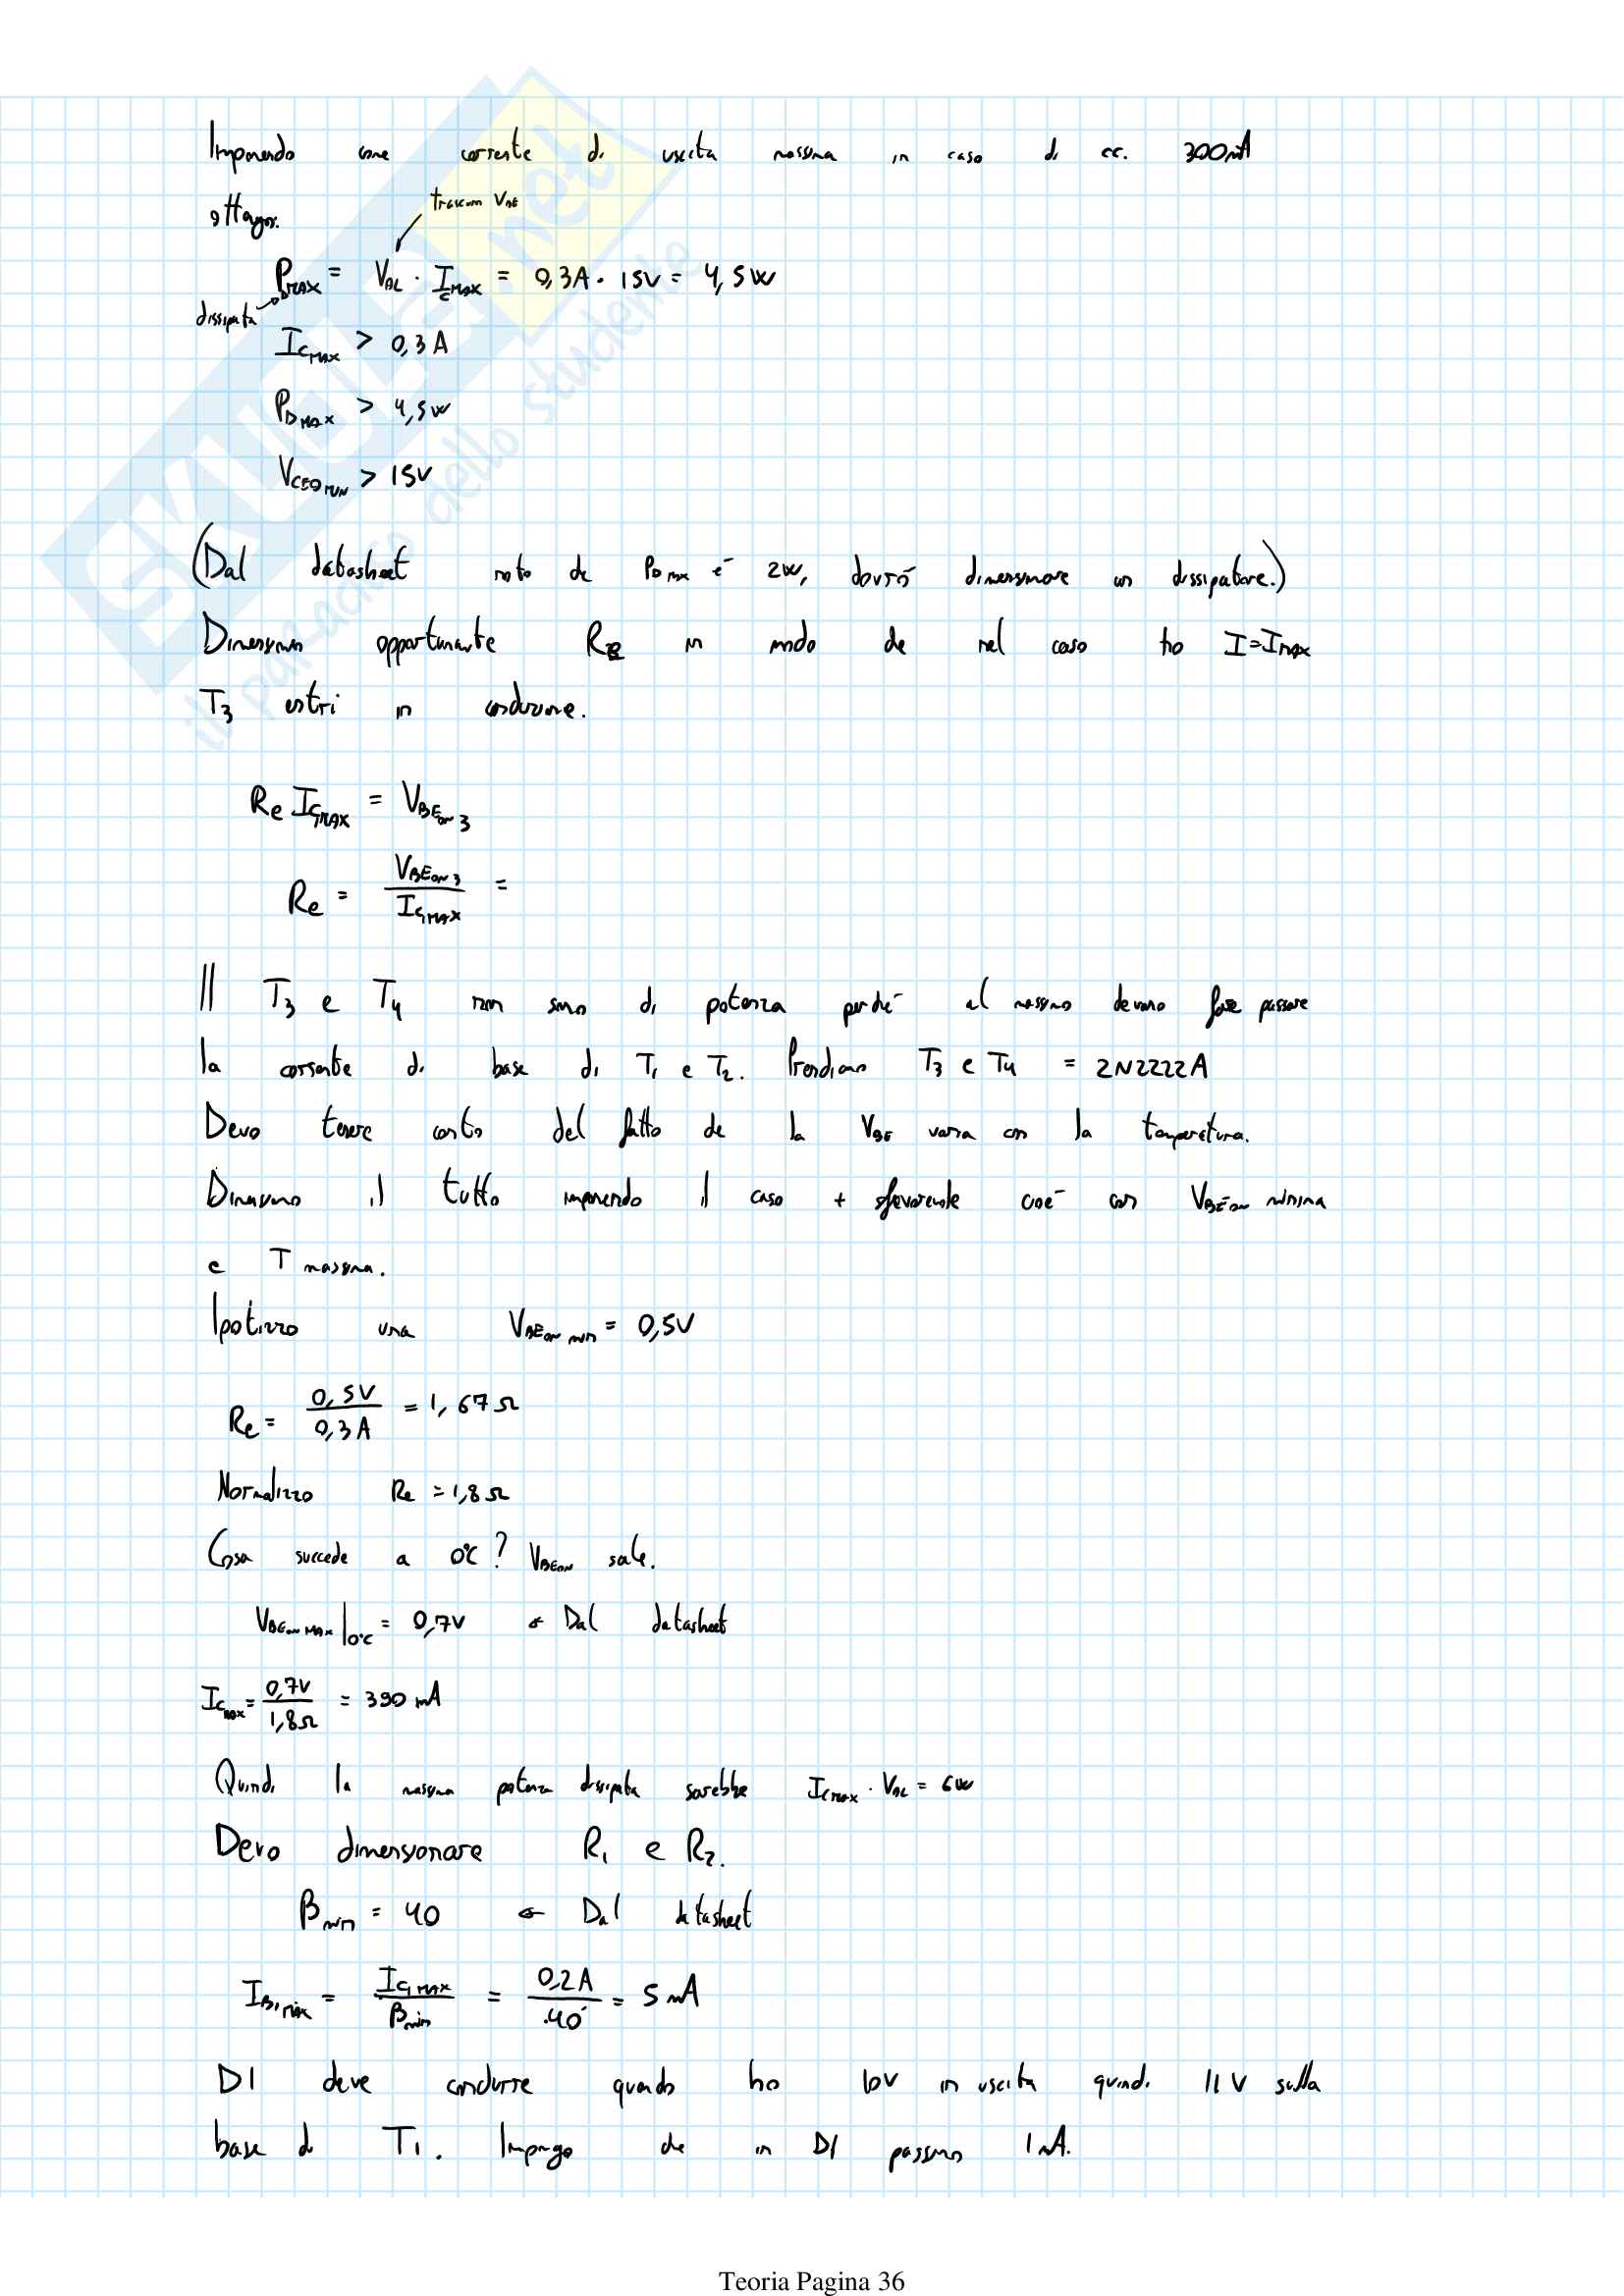 Imponendo come corrente di uscita massima in caso di cc. 300mA
ottengo:
trascuro VBE
PMAX = VAL · ICMAX = 0,3A · 15V = 4,5W
dissipata
ICMAX > 0,3A
PDMAX > 4,5W
VCEOMIN > 15V
(Dal datasheet noto che PDmax è 2W, dovrò dimensionare un dissipatore.)
Dimensiono opportunamente RE in modo che nel caso ho I=IMAX
T3 entri in conduzione.
Re IC1MAX = VBEon3
Re = VBEon3 / IC1MAX =
|| T3 e T4 non sono di potenza perché al massimo devono far passare
la corrente di base di T1 e T2. Prendiamo T3 e T4 = 2N2222A
Devo tenere conto del fatto che la VBE varia con la temperatura.
Dimensiono il tutto imponendo il caso + sfavorevole cioè con VBEon minima
e T massima.
Ipotizzo una VBEon min = 0,5V
Re = 0,5V / 0,3A = 1,67Ω
Normalizzo Re = 1,8Ω
Cosa succede a 0°C? VBEon sale.
VBEon MAX |0°C = 0,7V ← Dal datasheet
ICmax = 0,7V / 1,8Ω = 390mA
Quindi la massima potenza dissipata sarebbe ICmax · VAL = 6W
Devo dimensionare R1 e R2.
βmin = 40 ← Dal datasheet
IB1max = IC1MAX / βmin = 0,2A / 40 = 5mA
D1 deve condurre quando ho 10V in uscita quindi 11V sulla
base di T1. Impongo che in D1 passino 1mA.
SKUOLA.net
il paradiso dello studente
Teoria Pagina 36